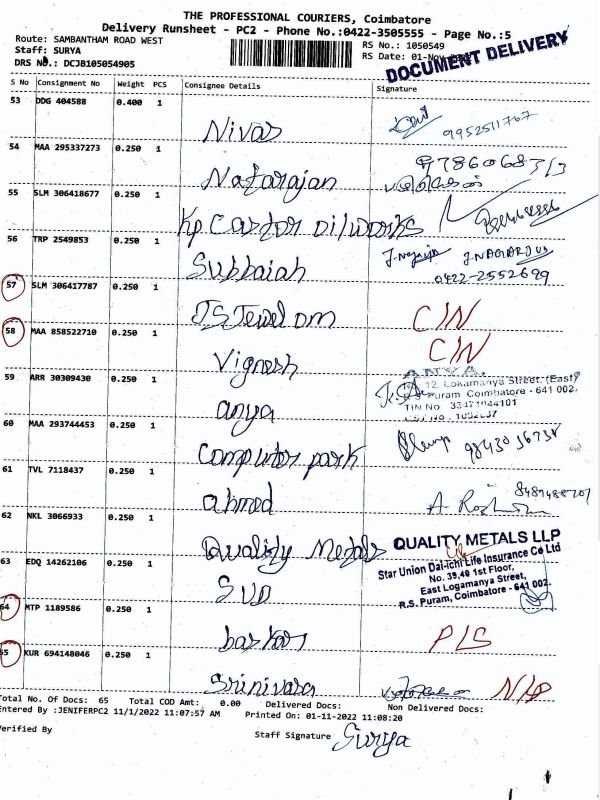 THE PROFESSIONAL COURIERS, Coimbatore
Delivery Runsheet - PC2 - Phone No.:0422-3505555 - Page No.:5
Route: SAMBANTHAM ROAD WEST
RS No.: 1050549
Staff: SURYA
RS Date: 01-Nov
DOCUMENT DELIVERY
DRS No.: DCJB105054905
S No Consignment No Weight PCS Consignee Details Signature
53 DDG 404588 0.400 1 Nivas 9952511767
54 MAA 295337273 0.250 1 Natarajan
55 SLM 306418677 0.250 1 Kp. Castor oil works
56 TRP 2549853 0.250 1 Subbaiah J. NAGARAJ
0422-2552699
57 SLM 306417787 0.250 1 JS Jewel om C/N
58 MAA 858522710 0.250 1 Vignesh C/N
59 ARR 30309430 0.250 1 anya
12. Lokamanya Street. (East)
Puram Coimbatore - 641 002.
TIN No
60 MAA 293744453 0.250 1 Computer park
61 TVL 7118437 0.250 1 ahmed
62 NKL 3066933 0.250 1 Quality Metals QUALITY METALS LLP
63 EDQ 14262106 0.250 1 SUD
Star Union Dai-ichi Life Insurance Co Ltd
No. 39,49 1st Floor,
East Logamanya Street,
R.S. Puram, Coimbatore - 641 002.
64 MTP 1189586 0.250 1 baskar P/S
65 KUR 694148046 0.250 1 Srinivasa
Total No. Of Docs: 65 Total COD Amt: 0.00 Delivered Docs: Non Delivered Docs:
Entered By :JENIFERPC2 11/1/2022 11:07:57 AM Printed On: 01-11-2022 11:08:20
Verified By Staff Signature Surya